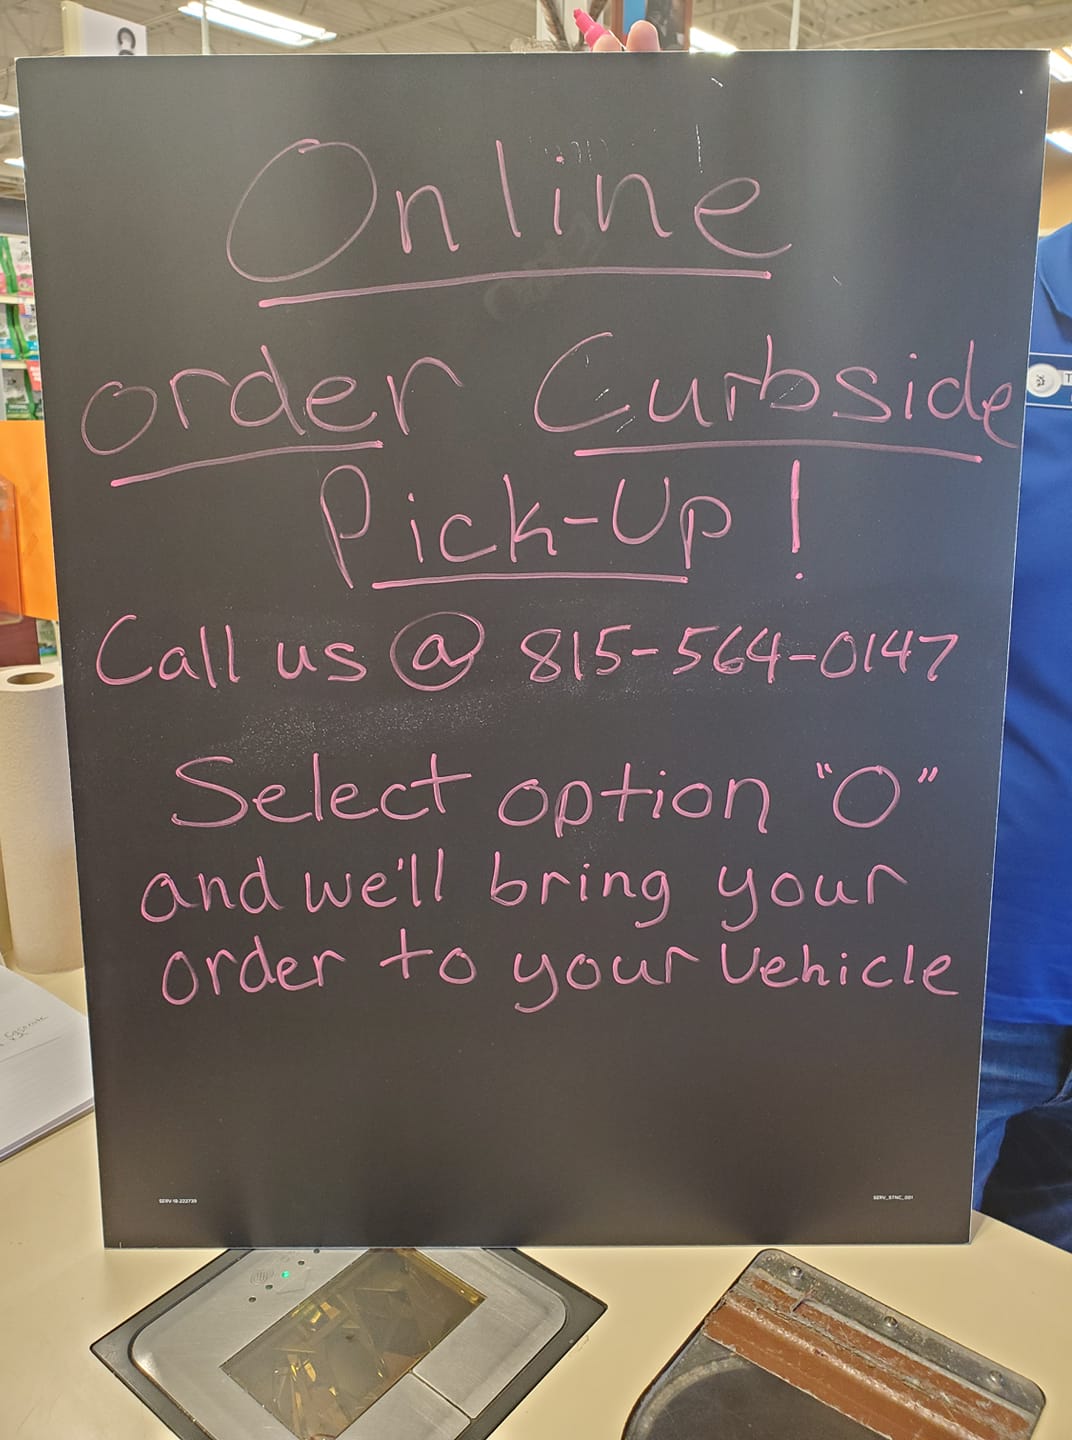 Online
order Curbside
Pick-Up!
Call us @ 815-564-0147
Select option "0"
and we'll bring your
order to your vehicle
SERV-19-222739
SERV_STNC_001